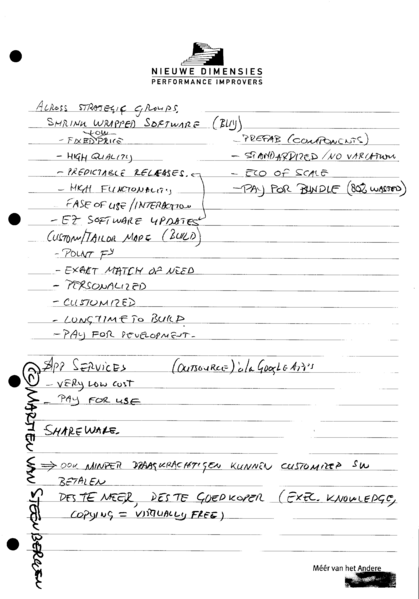 NIEUWE DIMENSIES
PERFORMANCE IMPROVERS
ACROSS STRATEGIC GROUPS,
SHRINK WRAPPED SOFTWARE (BUY)
LOW
- FIXED PRICE
- HIGH QUALITY
- PREDICTABLE RELEASES.
- HIGH FUNCTIONALITY
EASE OF USE/INTERACTION
- EZ SOFTWARE UPDATES
- PREFAB (COMPONENTS)
- STANDARDIZED/NO VARIATION
- ECO OF SCALE
- PAY FOR BUNDLE (80% WASTED)
CUSTOM/TAILOR MADE (BUILD)
- POINT
- EXACT MATCH OF NEED
- PERSONALIZED
- CUSTOMIZED
- LONG TIME TO BUILD
- PAY FOR DEVELOPMENT.
APP SERVICES (OUTSOURCE) GOOGLE APPS
- VERY LOW COST
- PAY FOR USE
SHAREWARE
⇒ OOK MINDER DRAAGKRACHTIGEN KUNNEN CUSTOMIZED SW
BETALEN
DES TE MEER, DES TE GOEDKOPER (EXEC. KNOWLEDGE,
COPYING = VIRTUALLY FREE)
(C) MARTIEN VAN STEENBERGEN
Méér van het Andere